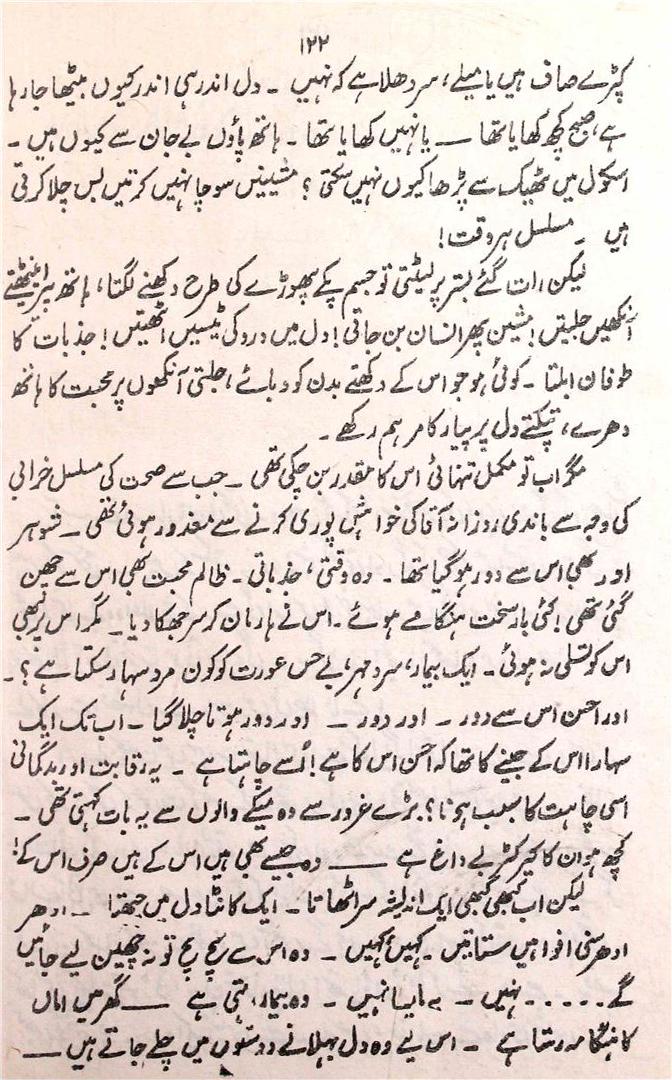 ۱۲۲
کپڑے صاف ہیں یا میلے، سر دھلا ہے کہ نہیں ۔ دل اندر ہی اندر کیوں بیٹھا جا رہا
ہے، صبح کچھ کھایا تھا ـــ یا نہیں کھایا تھا ۔ ہاتھ پاؤں بے جان سے کیوں ہیں ۔
اسکول میں ٹھیک سے پڑھا کیوں نہیں سکتی ؟ مشینیں سوچا نہیں کرتیں بس چلا کرتی
ہیں ۔ مسلسل ہر وقت !
لیکن رات گئے بستر پر لیٹتی تو جسم پکے پھوڑے کی طرح دکھنے لگتا، ہاتھ پیر اینٹھتے
آنکھیں جلتیں ! مشین پھر انسان بن جاتی ! دل میں درد کی ٹیسیں اٹھتیں ! جذبات کا
طوفان ابلتا ۔ کوئی ہو جو اس کے دکھتے بدن کو دبائے، جلتی آنکھوں پر محبت کا ہاتھ
دھرے، تپکتے دل پر پیار کا مرہم رکھے ۔
مگر اب تو مکمل تنہائی اس کا مقدر بن چکی تھی ۔ جب سے صحت کی مسلسل خرابی
کی وجہ سے باندی روزانہ آقا کی خواہش پوری کرنے سے معذور ہوئی تھی ۔ شوہر
اور بھی اس سے دور ہو گیا تھا ۔ وہ وقتی، جذباتی ۔ ظالم محبت بھی اس سے چھن
گئی تھی ! کئی بار سخت ہنگامے ہوئے ۔ اس نے ہار مان کر سر جھکا دیا ۔ مگر اس پر بھی
اس کو تسلی نہ ہوئی ۔ ایک بیمار، سرد مہر، بے حس عورت کو کون مرد سہار سکتا ہے ؟ ۔
اور احسن اس سے دور ۔ اور دور ۔ اور دور ہوتا چلا گیا ۔ اب تک ایک
سہارا اس کے جینے کا تھا کہ احسن اس کا ہے ! اُسے چاہتا ہے ۔ یہ رقابت اور بدگمانی
اسی چاہت کا سبب ہے نا ؟ بڑے غرور سے وہ میکے والوں سے یہ بات کہتی تھی ۔
کچھ ہو ان کا کیرکٹر بے داغ ہے ـــ وہ جیسے بھی ہیں اس کے ہیں صرف اس کے !
لیکن اب کبھی کبھی ایک اندیشہ سر اٹھاتا ۔ ایک کانٹا دل میں چبھتا ۔ ادھر
ادھر سنی افواہیں ستاتیں ۔ کہیں کہیں ۔ وہ اس سے سچ مچ تو نہ چھین لیے جائیں
گے ۔ ۔ ۔ ۔ ۔ نہیں ۔ ایسا نہیں ۔ وہ بیمار رہتی ہے ـــ گھر میں اماں
کا ہنگامہ رہتا ہے ۔ اس لیے وہ دل بہلانے دوستوں میں چلے جاتے ہیں ـــ